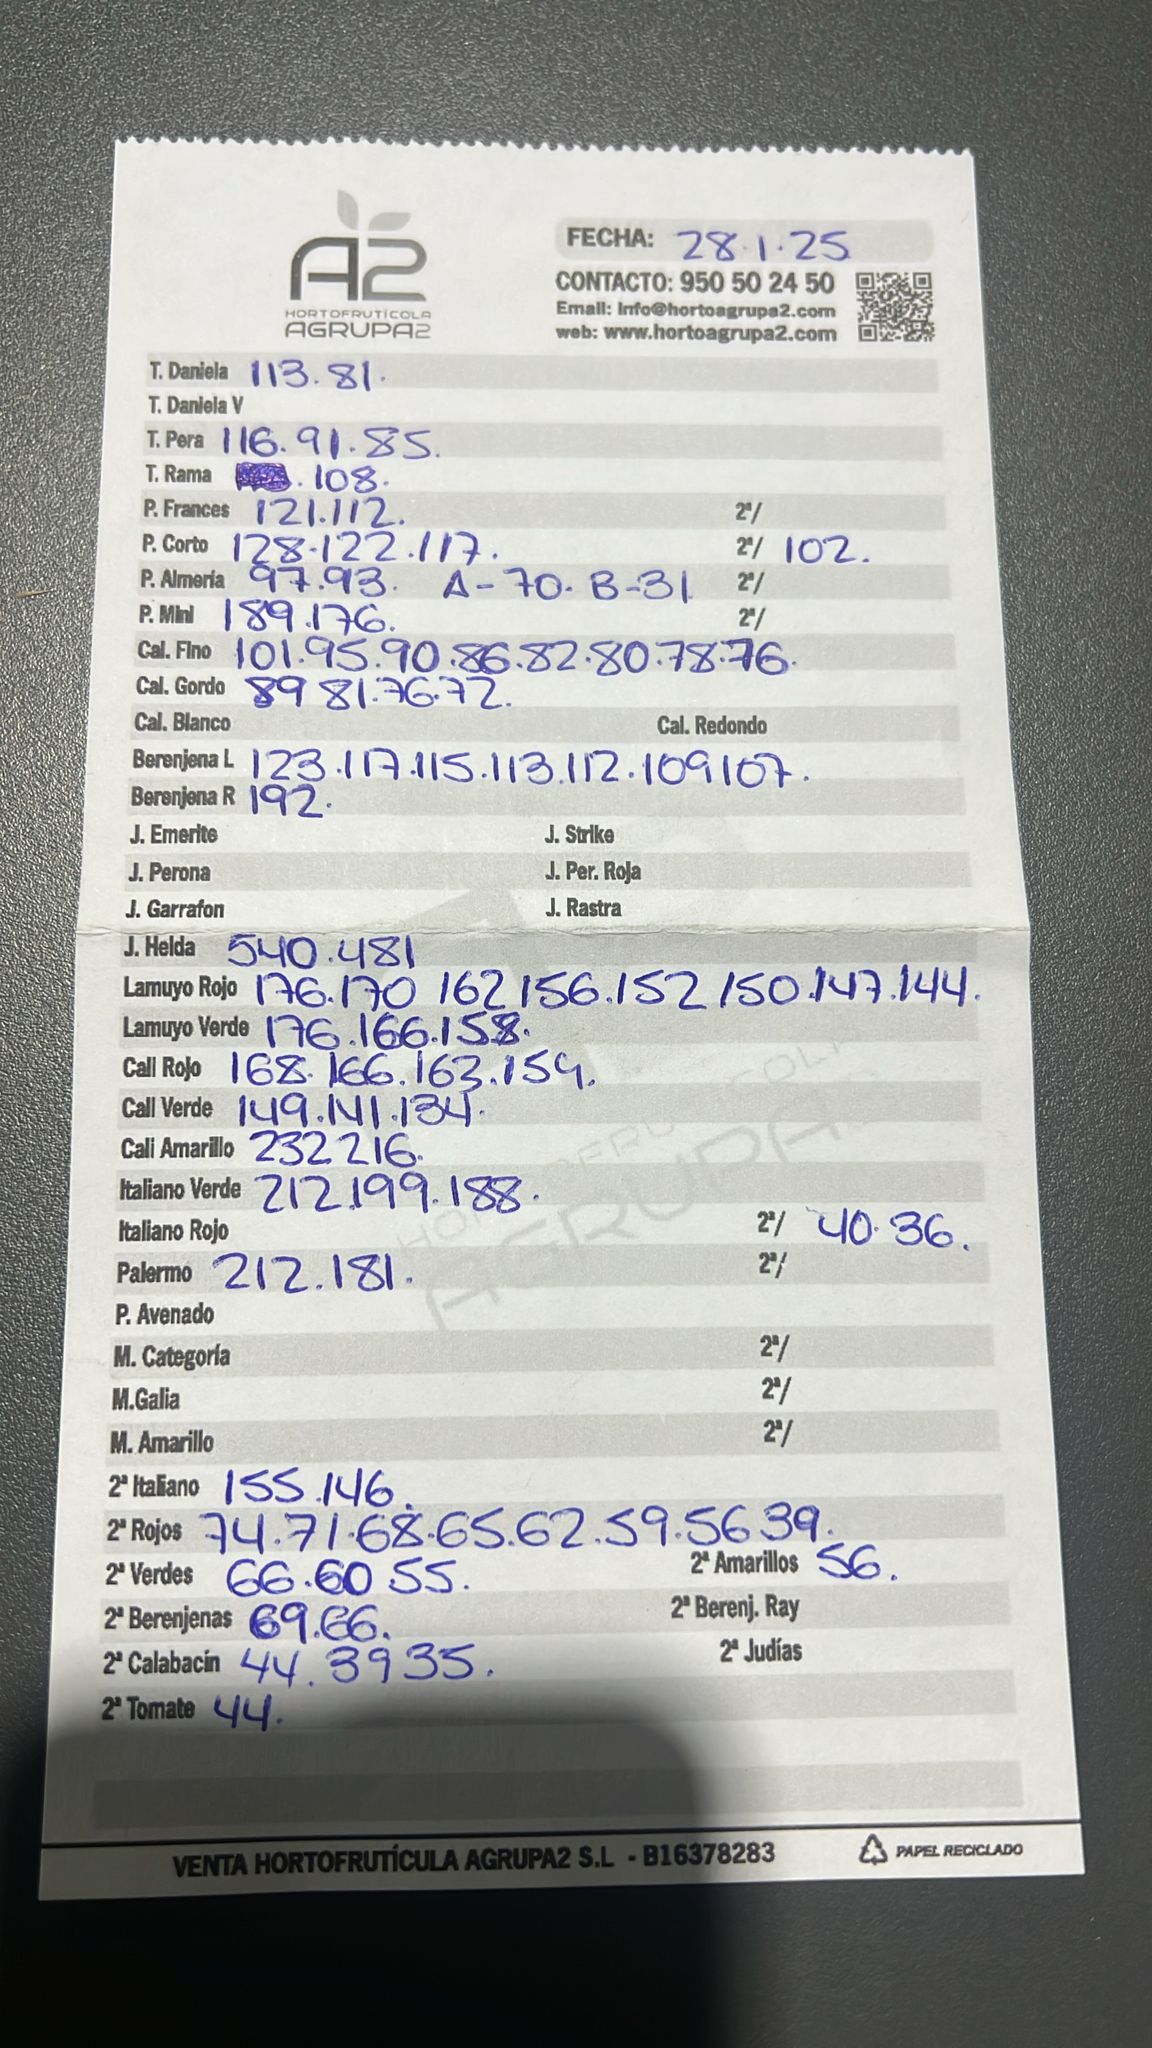 A2
HORTOFRUTÍCOLA
AGRUPA2
FECHA: 28.1.25
CONTACTO: 950 50 24 50
Email: info@hortoagrupa2.com
web: www.hortoagrupa2.com
T. Daniela 113.81.
T. Daniela V
T. Pera 116.91.85.
T. Rama .108.
P. Frances 121.112. 2ª/
P. Corto 128.122.117. 2ª/ 102.
P. Almería 97.93. A-70. B-31 2ª/
P. Mini 189.176. 2ª/
Cal. Fino 101.95.90.86.82.80.78.76.
Cal. Gordo 89 81.76.72.
Cal. Blanco Cal. Redondo
Berenjena L 123.117.115.113.112.109 107.
Berenjena R 192.
J. Emerite J. Strike
J. Perona J. Per. Roja
J. Garrafon J. Rastra
J. Helda 540.481
Lamuyo Rojo 176.170 162 156.152 150.147.144.
Lamuyo Verde 176.166.158.
Cali Rojo 168.166.163.154.
Cali Verde 149.141.134.
Cali Amarillo 232 216.
Italiano Verde 212.199.188.
Italiano Rojo 2ª/ 40.36.
Palermo 212.181. 2ª/
P. Avenado
M. Categoría 2ª/
M.Galia 2ª/
M. Amarillo 2ª/
2ª Italiano 155.146.
2ª Rojos 74.71.68.65.62.59.56 39.
2ª Verdes 66.60 55. 2ª Amarillos 56.
2ª Berenjenas 69.66. 2ª Berenj. Ray
2ª Calabacín 44.39 35. 2ª Judías
2ª Tomate 44.
VENTA HORTOFRUTÍCULA AGRUPA2 S.L - B16378283 PAPEL RECICLADO